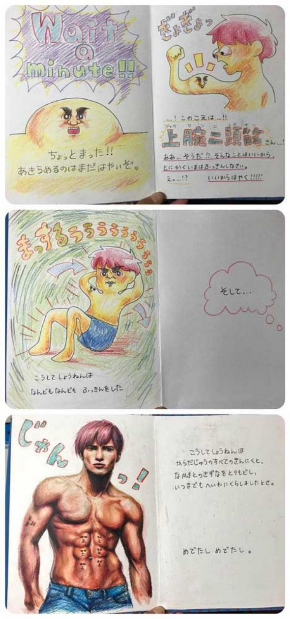 Wait
a
minute!!
ちょっとまった!!
あきらめるのはまだはやいぞ。
ぎょぎょっ
…!このこえは…!!
上腕二頭筋さん…!
ああ、そうだ!!そんなことはいいから、
とにかくいまはふっきんしなさい。
え…!?　いいからはやく!!!!!
まっするうろうううううう
こうしてしょうねんは
なんどもなんども ふっきんをした
そして…
じゃんっ!
こうしてしょうねんは
からだじゅうのすべてのきんにくと、
なかまとのきずなをとりもどし、
いつまでもへいわにくらしましたとさ。
めでたし めでたし。